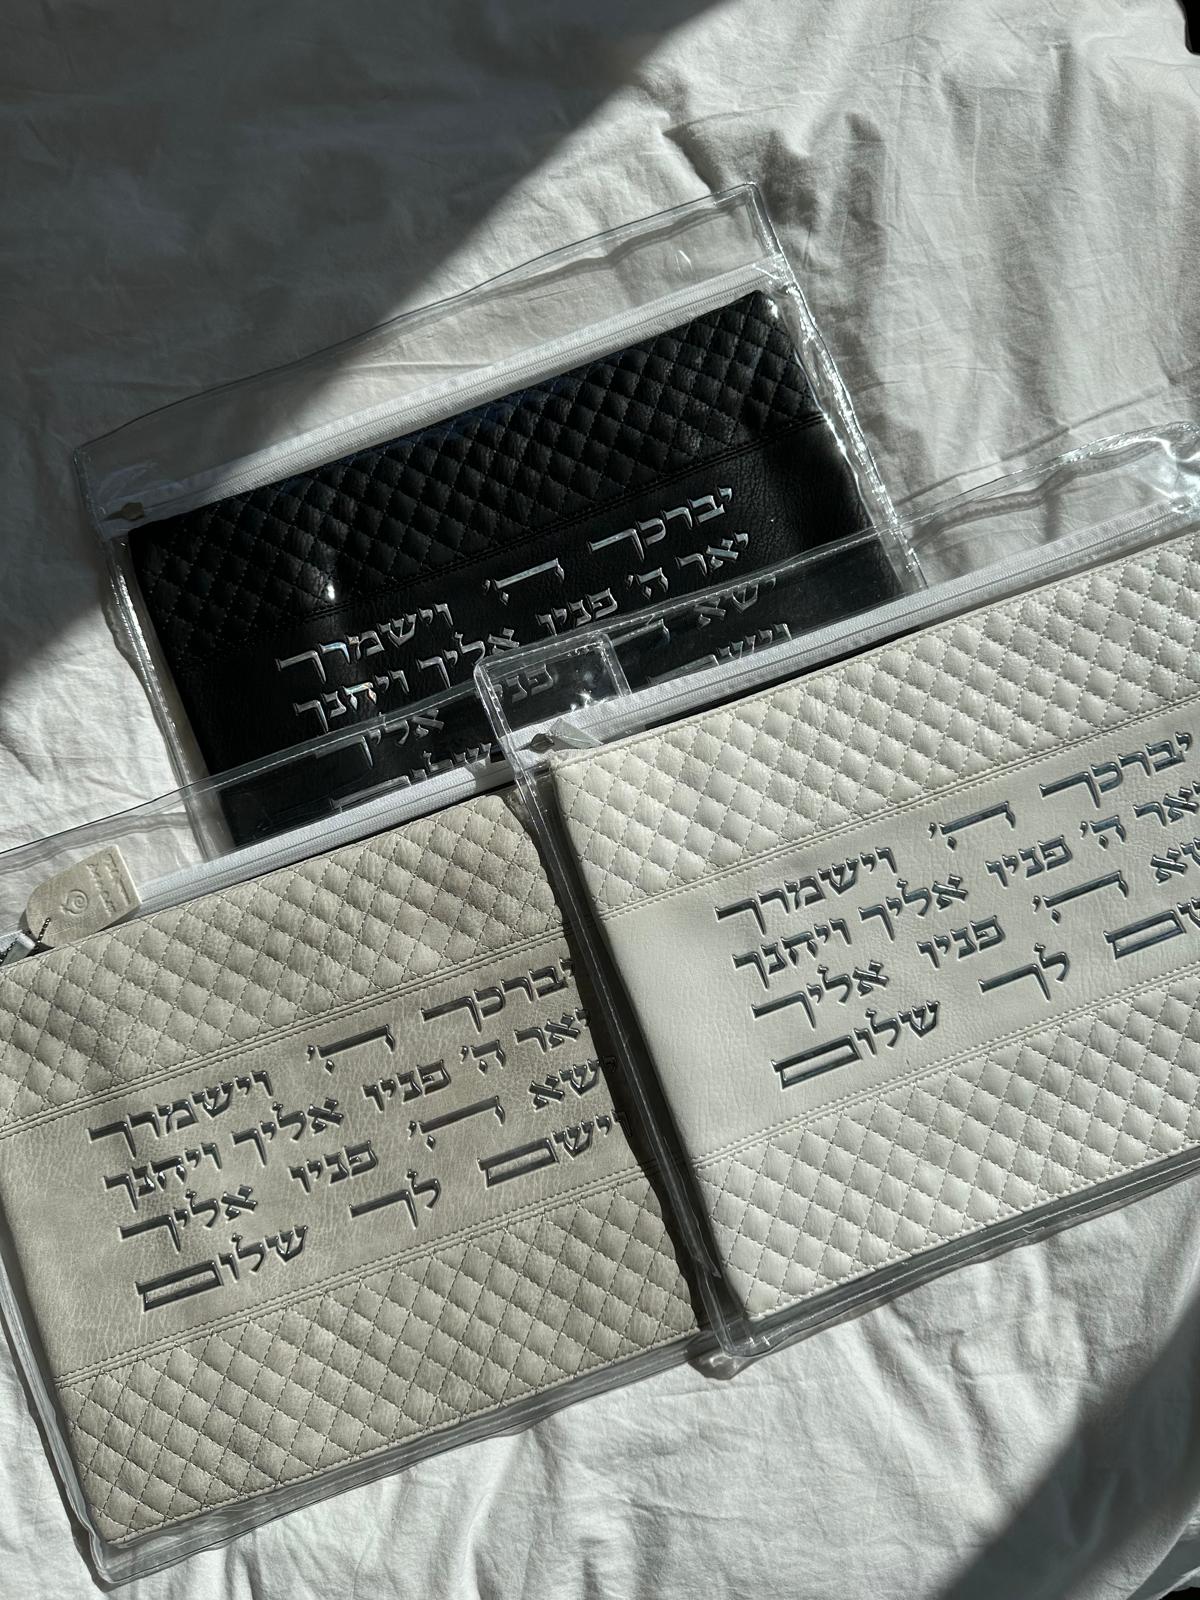 יברכך ה׳ וישמרך
יאר ה׳ פניו אליך ויחנך
ישא פניו אליך
שלום
יברכך ה׳ וישמרך
ה׳ פניו אליך ויחנך
ה׳ פניו אליך
לך שלום
יברכך ה׳ וישמרך
יאר ה׳ פניו אליך ויחנך
ישא ה׳ פניו אליך
וישם לך שלום